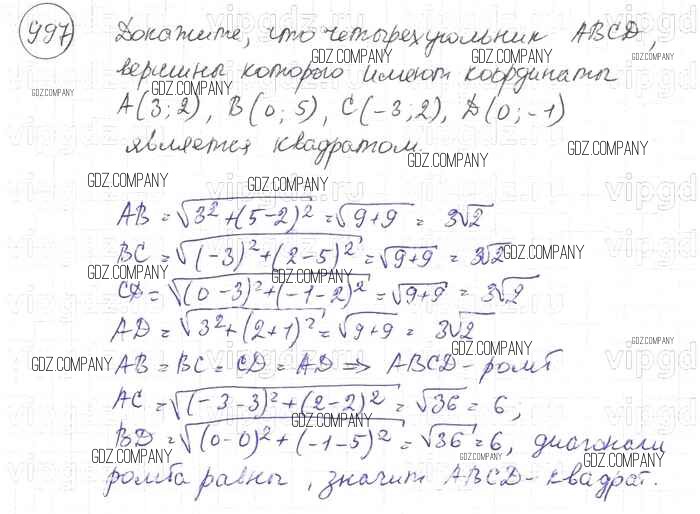 997 Докажите, что четырехугольник ABCD,
вершины которого имеют координаты
A(3; 2), B(0; 5), C(-3; 2), D(0; -1)
является квадратом.
AB = √(3² + (5-2)²) = √(9+9) = 3√2
BC = √((-3)² + (2-5)²) = √(9+9) = 3√2
CD = √((0-3)² + (-1-2)²) = √(9+9) = 3√2
AD = √(3² + (2+1)²) = √(9+9) = 3√2
AB = BC = CD = AD ⇒ ABCD - ромб
AC = √((-3-3)² + (2-2)²) = √36 = 6;
BD = √((0-0)² + (-1-5)²) = √36 = 6, диагонали
ромба равны, значит ABCD - квадрат.
GDZ.COMPANY
vipgdz.ru